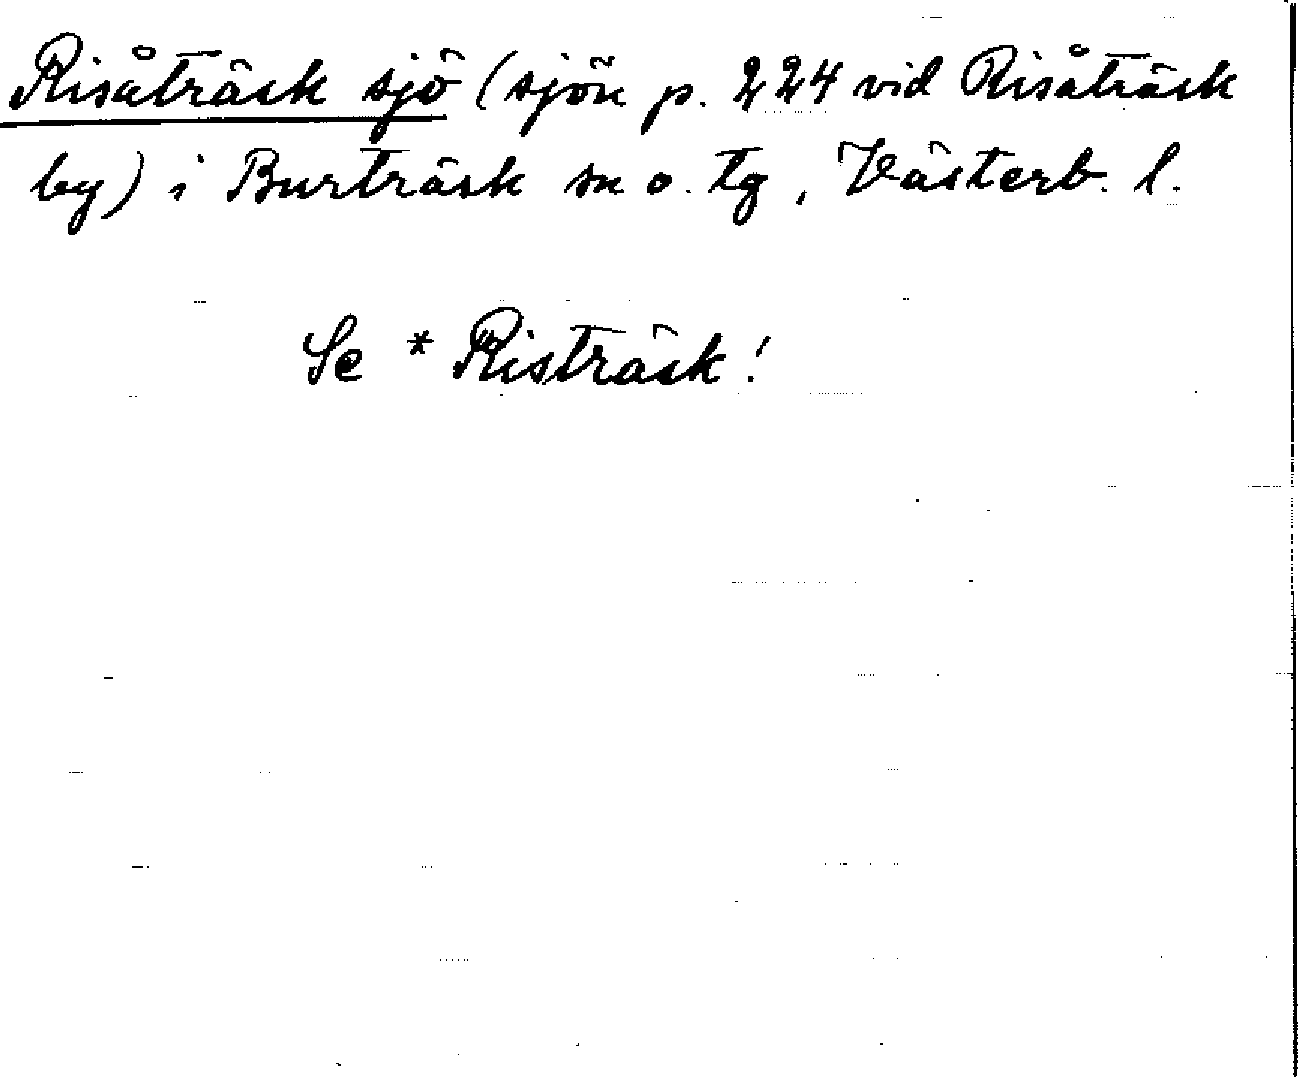 Risåträsk sjö (sjön p. 224 vid Risåträsk
by) i Burträsk sn o. tg, Västerb. l.
Se * Risträsk!